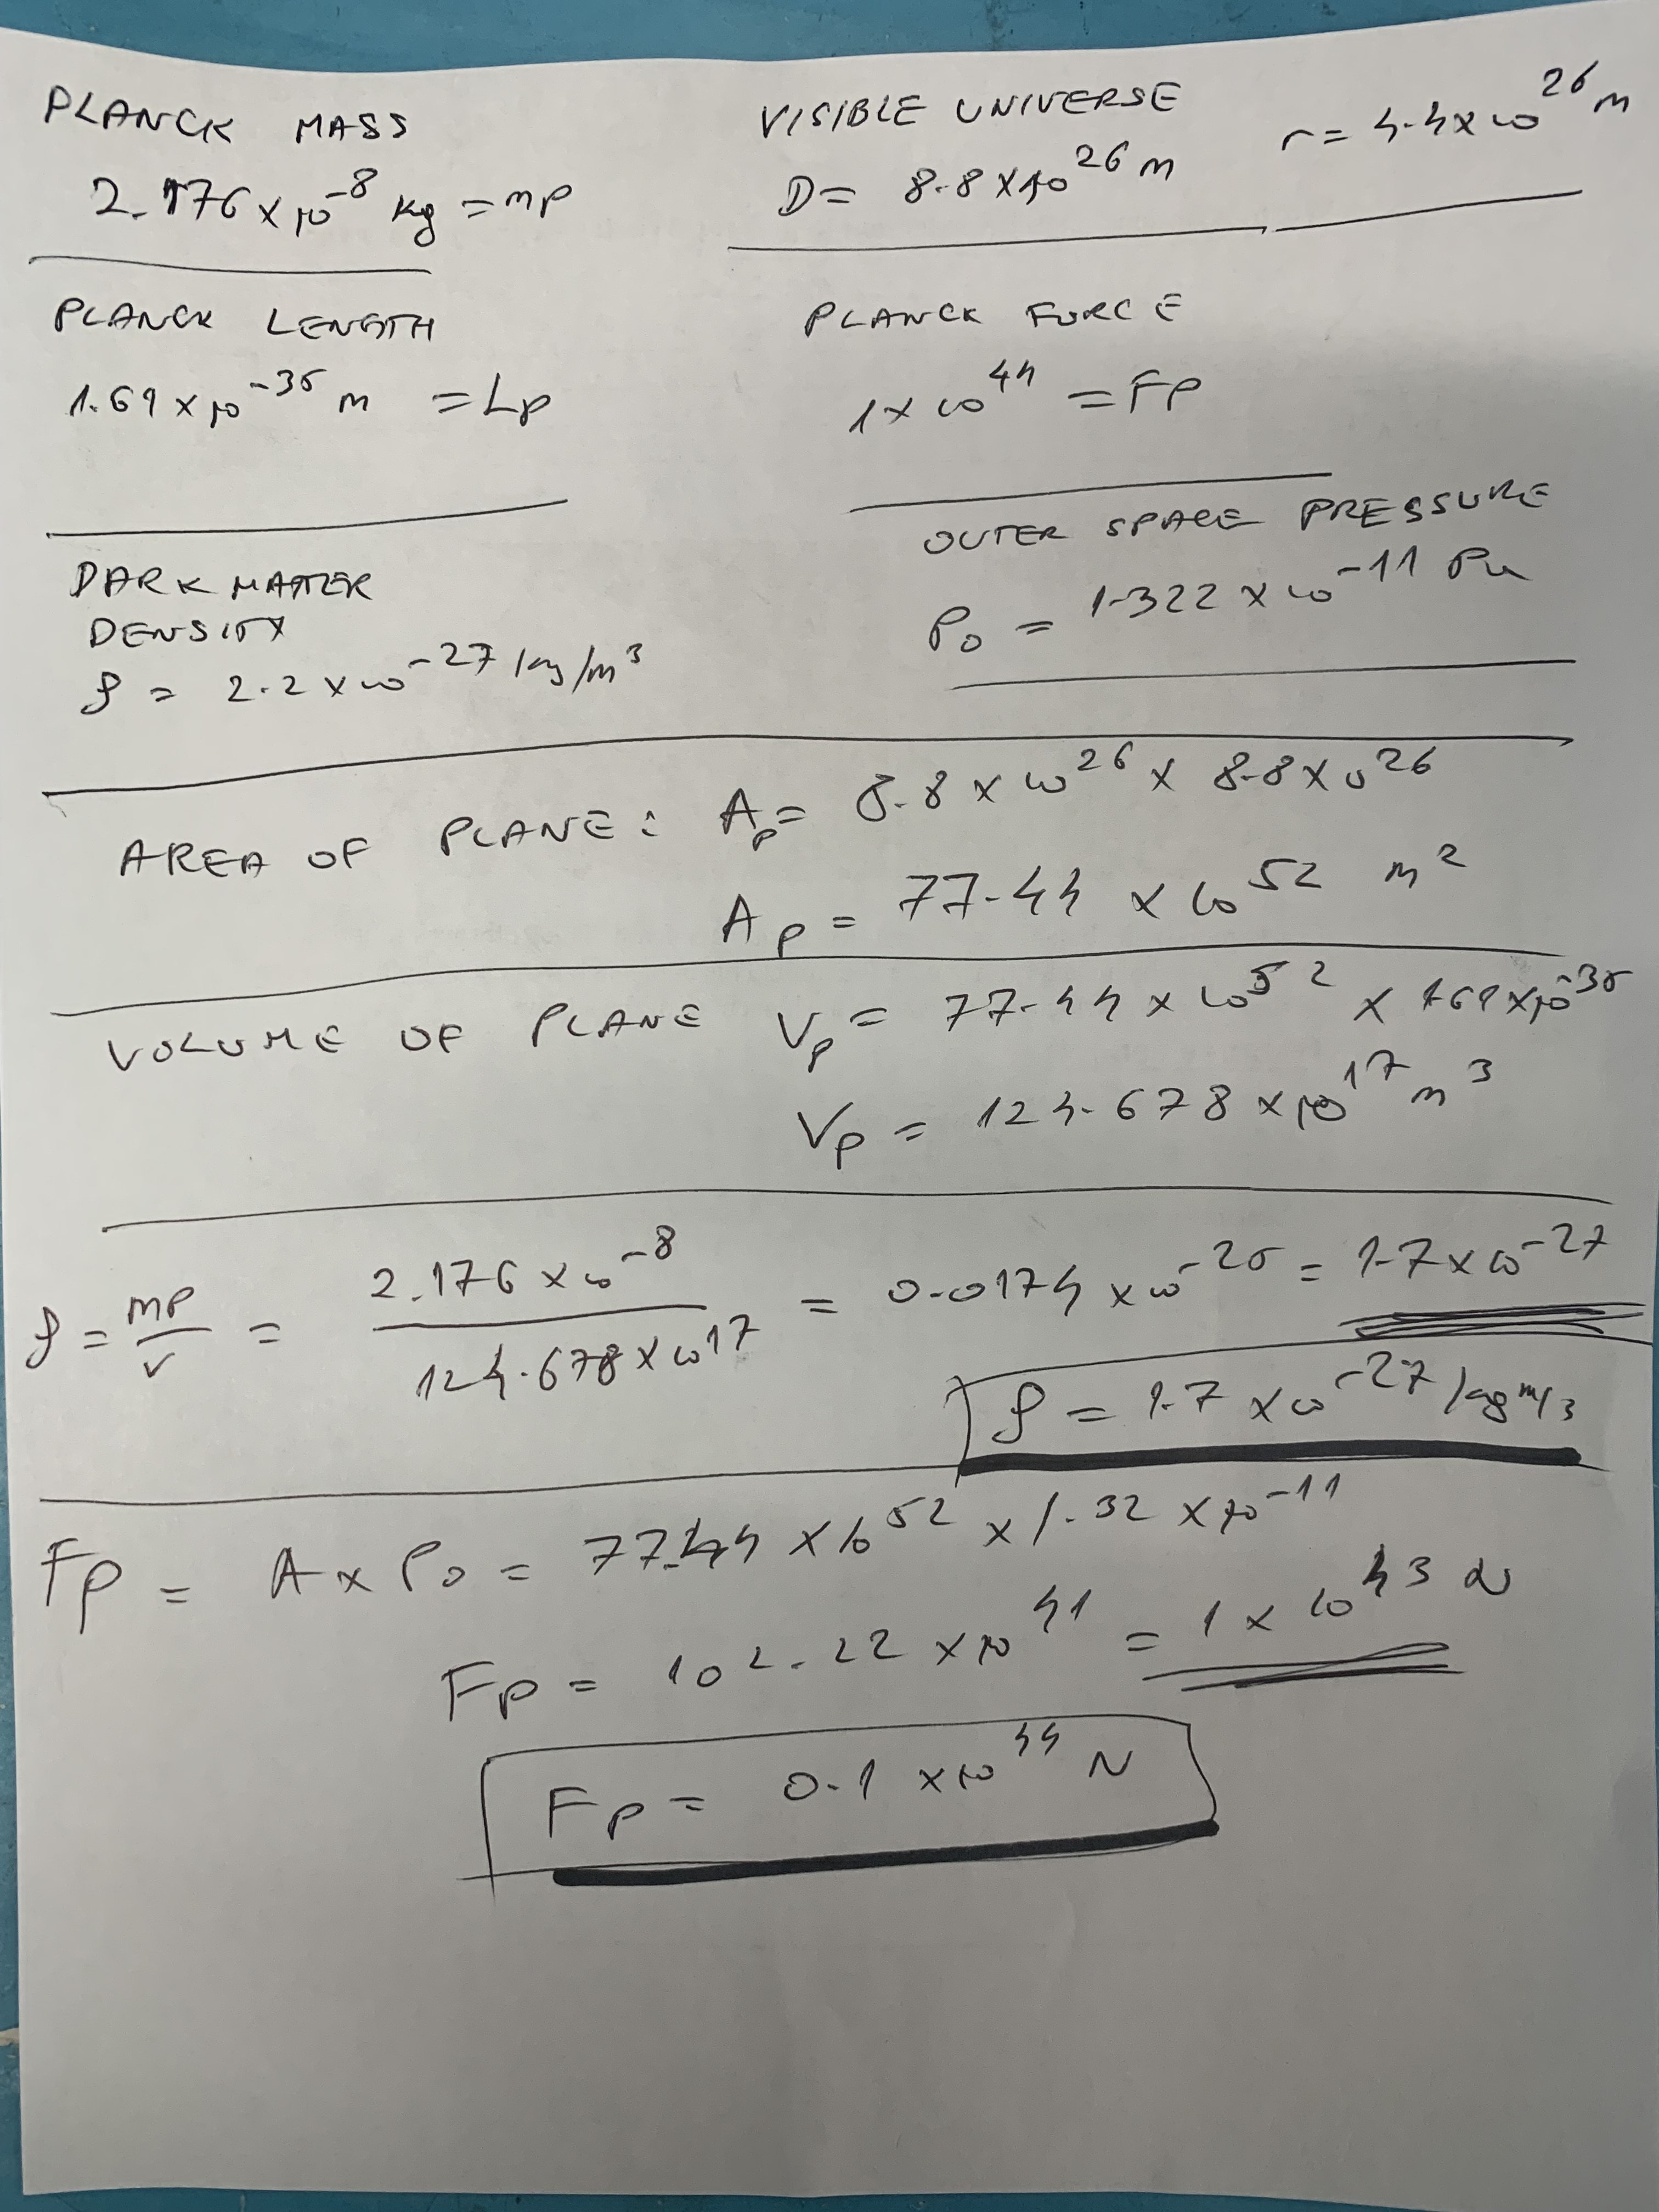 PLANCK MASS
2.176 x 10^-8 kg = mp
VISIBLE UNIVERSE
D = 8.8 x 10^26 m
r = 4.4 x 10^26 m
PLANCK LENGTH
1.61 x 10^-35 m = Lp
PLANCK FORCE
1 x 10^44 = FP
DARK MATTER
DENSITY
ρ = 2.2 x 10^-27 kg/m^3
OUTER SPACE PRESSURE
Po = 1.322 x 10^-11 Pa
AREA OF PLANE: Ap = 8.8 x 10^26 x 8.8 x 10^26
Ap = 77.44 x 10^52 m^2
VOLUME OF PLANE Vp = 77.44 x 10^52 x 1.61 x 10^-35
Vp = 124.678 x 10^17 m^3
ρ = mp/v = 2.176 x 10^-8 / 124.678 x 10^17 = 0.0174 x 10^-25 = 1.7 x 10^-27
ρ = 1.7 x 10^-27 kg m/3
Fp = A x Po = 77.44 x 10^52 x 1.32 x 10^-11
Fp = 102.22 x 10^41 = 1 x 10^43 N
Fp = 0.1 x 10^44 N